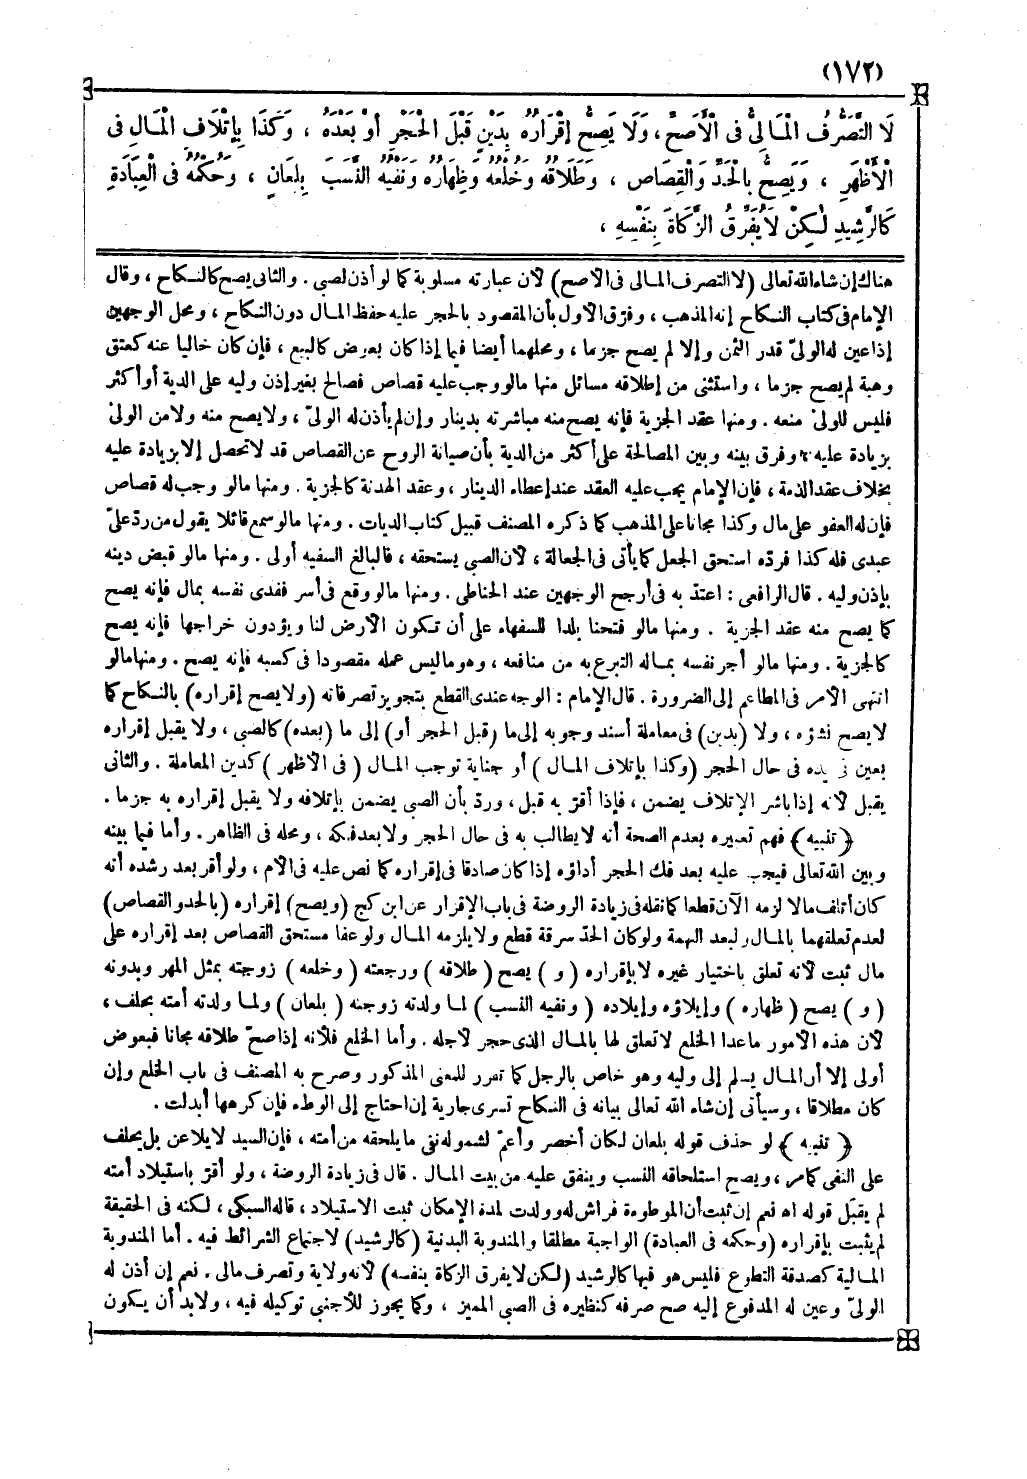 (١٧٢)
لَا التَّصَرُّفُ الْمَالِىُّ فى الْأَصَحِّ، وَلَا يَصِحُّ إقْرَارُهُ بِدَيْنٍ قَبْلَ الْحَجْرِ أَوْ بَعْدَهُ ، وَكَذَا بِإتْلَافِ الْمَالِ فى
الْأَظْهَرِ ، وَيَصِحُّ بِالْحَدِّ وَالْقِصَاصِ ، وَطَلَاقُهُ وَخُلْعُهُ وَظِهَارُهُ وَنَفْيُهُ النَّسَبَ بِلِعَانٍ ، وَحُكْمُهُ فى الْعِبَادَةِ
كَالرَّشِيدِ لَكِنْ لَا يُفَرِّقُ الزَّكَاةَ بِنَفْسِهِ ،
هناك إن شاء الله تعالى (لا التصرف المالى فى الأصح) لأن عبارته مسلوبة كما لو أذن لصبى . والثانى يصح كالنكاح ، وقال
الإمام فى كتاب النكاح إنه المذهب ، وفرق الأول بأن المقصود بالحجر عليه حفظ المال دون النكاح ، ومحل الوجهين
إذا عين له الولىّ قدر الثمن وإلا لم يصح جزما ، ومحلهما أيضا فيما إذا كان بعوض كالبيع ، فإن كان خاليا عنه كعتق
وهبة لم يصح جزما ، واستثنى من إطلاقه مسائل منها مالو وجب عليه قصاص فصالح بغير إذن وليه على الدية أو أكثر
فليس للولىّ منعه . ومنها عقد الجزية فإنه يصح منه مباشرته بدينار وإن لم يأذن له الولىّ ، ولا يصح منه ولا من الولىّ
بزيادة عليه ، وفرق بينه وبين المصالحة على أكثر من الدية بأن صيانة الروح عن القصاص قد لا تحصل إلا بزيادة عليه
بخلاف عقد الذمة ، فإن الإمام يجب عليه العقد عند إعطاء الدينار ، وعقد الهدنة كالجزية . ومنها مالو وجب له قصاص
فإن له العفو على مال وكذا مجانا على المذهب كما ذكره المصنف قبيل كتاب الديات . ومنها مالو سمع قائلا يقول من ردّ علىّ
عبدى فله كذا فردّه استحق الجعل كما يأتى فى الجعالة ، لأن الصبى يستحقه ، فالبالغ السفيه أولى . ومنها مالو قبض دينه
بإذن وليه . قال الرافعى : اعتدّ به فى أرجح الوجهين عند الحناطى . ومنها مالو وقع فى أسر ففدى نفسه بمال فإنه يصح
كما يصح منه عقد الجزية . ومنها مالو فتحنا بلدا للسفهاء على أن تكون الأرض لنا ويؤدون خراجها فإنه يصح
كالجزية . ومنها مالو أجر نفسه بماله التبرع به من منافعه ، وهو ماليس عمله مقصودا فى كسبه فإنه يصح . ومنها مالو
انتهى الأمر فى المطاعم إلى الضرورة . قال الإمام : الوجه عندى القطع بتجويز تصرفاته (ولا يصح إقراره) بالنكاح كما
لا يصح نشؤه ، ولا (بدين) فى معاملة أسند وجوبه إلى ما (قبل الحجر أو) إلى ما (بعده) كالصبى ، ولا يقبل إقراره
بعين فى يده فى حال الحجر (وكذا بإتلاف المال ) أو جناية توجب المال ( فى الأظهر ) كدين المعاملة . والثانى
يقبل لأنه إذا باشر الإتلاف يضمن ، فإذا أقرّ به قبل ، وردّ بأن الصبى يضمن بإتلافه ولا يقبل إقراره به جزما .
﴿ تنبيه ﴾ فهم تعبيره بعدم الصحة أنه لا يطالب به فى حال الحجر ولا بعد فكه ، ومحله فى الظاهر . وأما فيما بينه
وبين الله تعالى فيجب عليه بعد فك الحجر أداؤه إذا كان صادقا فى إقراره كما نص عليه فى الأم ، ولو أقر بعد رشده أنه
كان أتلف مالا لزمه الآن قطعا كما نقله فى زيادة الروضة فى باب الإقرار عن ابن كج (ويصح) إقراره (بالحد والقصاص)
لعدم تعلقهما بالمال ولبعد التهمة ولو كان الحدّ سرقة قطع ولا يلزمه المال ولو عفا مستحق القصاص بعد إقراره على
مال ثبت لأنه تعلق باختيار غيره لا بإقراره ( و ) يصح ( طلاقه ) ورجعته ( وخلعه ) زوجته بمثل المهر وبدونه
( و ) يصح ( ظهاره ) وإيلاؤه وإيلاده ( ونفيه النسب ) لما ولدته زوجته ( بلعان ) ولما ولدته أمته بحلف ،
لأن هذه الأمور ماعدا الخلع لا تعلق لها بالمال الذى حجر لأجله . وأما الخلع فلأنه إذا صحّ طلاقه مجانا فبعوض
أولى إلا أن المال يسلم إلى وليه وهو خاص بالرجل كما تقرر للمعنى المذكور وصرح به المصنف فى باب الخلع وإن
كان مطلاقا ، وسيأتى إن شاء الله تعالى بيانه فى النكاح تسرى جارية إن احتاج إلى الوطء فإن كرهها أبدلت .
﴿ تنبيه ﴾ لو حذف قوله بلعان لكان أخصر وأعمّ لشموله نفى ما يلحقه من أمته ، فإن السيد لا يلاعن بل يحلف
على النفى كما مر ، ويصح استلحاقه النسب وينفق عليه من بيت المال . قال فى زيادة الروضة ، ولو أقرّ باستيلاد أمته
لم يقبل قوله اه نعم إن ثبت أن الموطوءة فراش له وولدت لمدة الإمكان ثبت الاستيلاد ، قاله السبكى ، لكنه فى الحقيقة
لم يثبت بإقراره (وحكمه فى العبادة) الواجبة مطلقا والمندوبة البدنية (كالرشيد) لاجتماع الشرائط فيه . أما المندوبة
المالية كصدقة التطوع فليس هو فيها كالرشيد (لكن لا يفرق الزكاة بنفسه) لأنه ولاية وتصرف مالى . نعم إن أذن له
الولىّ وعين له المدفوع إليه صح صرفه كنظيره فى الصبى المميز ، وكما يجوز للأجنبى توكيله فيه ، ولابد أن يكون